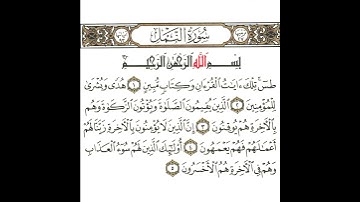 سُورَةُ النَّمْلِ
بِسْمِ اللَّهِ الرَّحْمَٰنِ الرَّحِيمِ
طسٓ تِلْكَ ءَايَٰتُ الْقُرْءَانِ وَكِتَابٍ مُّبِينٍ ١ هُدًى وَبُشْرَىٰ
لِلْمُؤْمِنِينَ ٢ الَّذِينَ يُقِيمُونَ الصَّلَوٰةَ وَيُؤْتُونَ الزَّكَوٰةَ وَهُم
بِالْءَاخِرَةِ هُمْ يُوقِنُونَ ٣ إِنَّ الَّذِينَ لَا يُؤْمِنُونَ بِالْءَاخِرَةِ زَيَّنَّا لَهُمْ
أَعْمَٰلَهُمْ فَهُمْ يَعْمَهُونَ ٤ أُو۟لَٰٓئِكَ الَّذِينَ لَهُمْ سُوٓءُ الْعَذَابِ
وَهُمْ فِي الْءَاخِرَةِ هُمُ الْأَخْسَرُونَ ٥